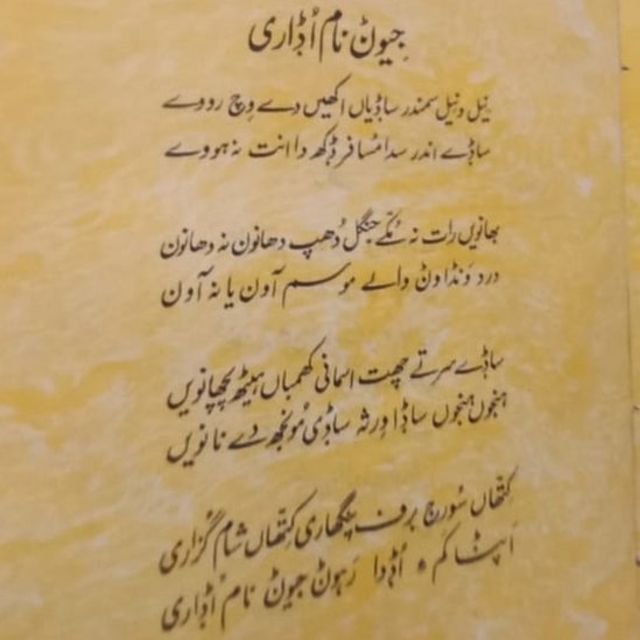 جِیوݨ نام اُڈاری
نیل ونیل سمندر ساڈیاں اکھیں دے وچ رووے
ساڈے اندر سدا مُسافر ڈکھ دا انت نہ ہووے
بھانویں رات نہ مُکے جنگل دُھپ دھانون نہ دھانون
درد وَنڈاون والے موسم آون یا نہ آون
ساڈے سر تے چھت اسمانی کھمباں ہیٹھ پچھانویں
ہنجوں ہنجوں ساڈا ورثہ ساڈی مُونجھ دے نانویں
کِتھاں سُورج برف پنگھاری کِتھاں شام گُزاری
اَپݨا کم ء اُڈدا رَہوݨ جیوݨ نام اُڈاری